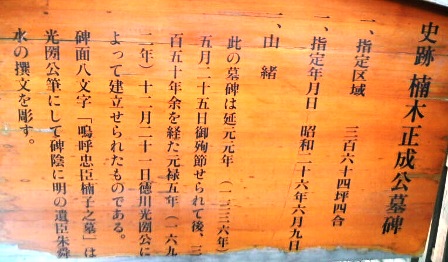 史跡 楠木正成公墓碑
一、指定区域 三百六十四坪四合
一、指定年月日 昭和二十六年六月九日
一、由緒
此の墓碑は延元元年(一三三六年)
五月二十五日御殉節せられて後、三
百五十年余を経た元禄五年(一六九
二年)十二月二十一日徳川光圀公に
よって建立せられたものである。
碑面八文字「嗚呼忠臣楠子之墓」は
光圀公筆にして碑陰に明の遺臣朱舜
水の撰文を彫す。